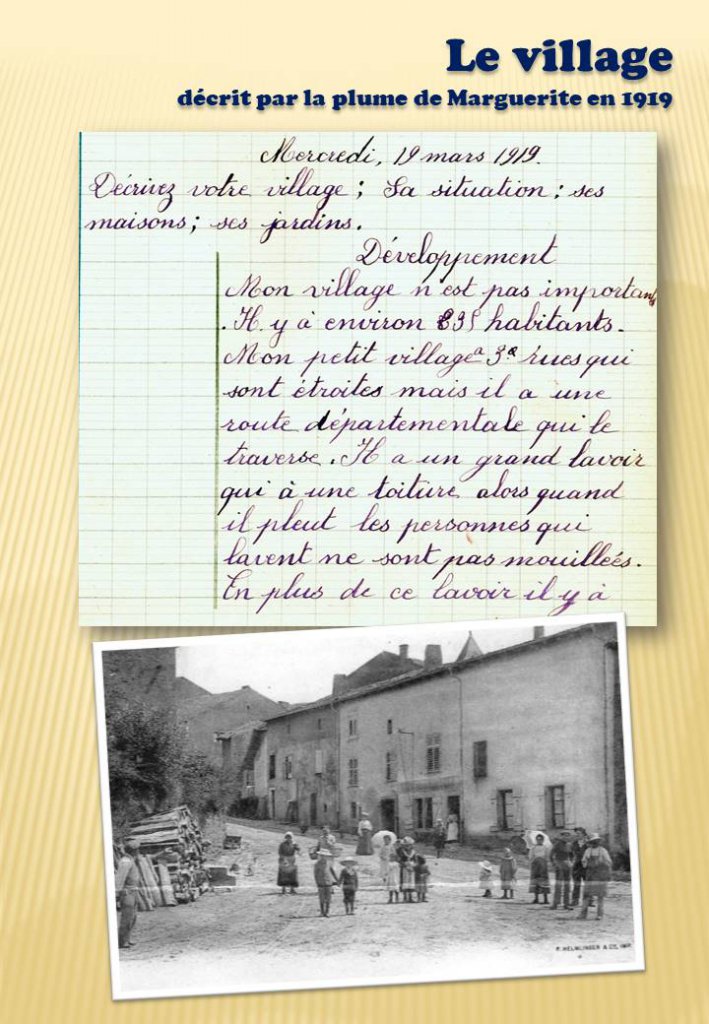 Le village
décrit par la plume de Marguerite en 1919
Mercredi, 19 mars 1919.
Décrivez votre village ; Sa situation ; ses
maisons ; ses jardins.
Développement
Mon village n'est pas important
. Il y à environ 235 habitants.
Mon petit village a 3 rues qui
sont étroites mais il a une
route départementale qui le
traverse. Il a un grand lavoir
qui à une toiture alors quand
il pleut les personnes qui
lavent ne sont pas mouillées.
En plus de ce lavoir il y à
HELMLINGER & CO, IMP.